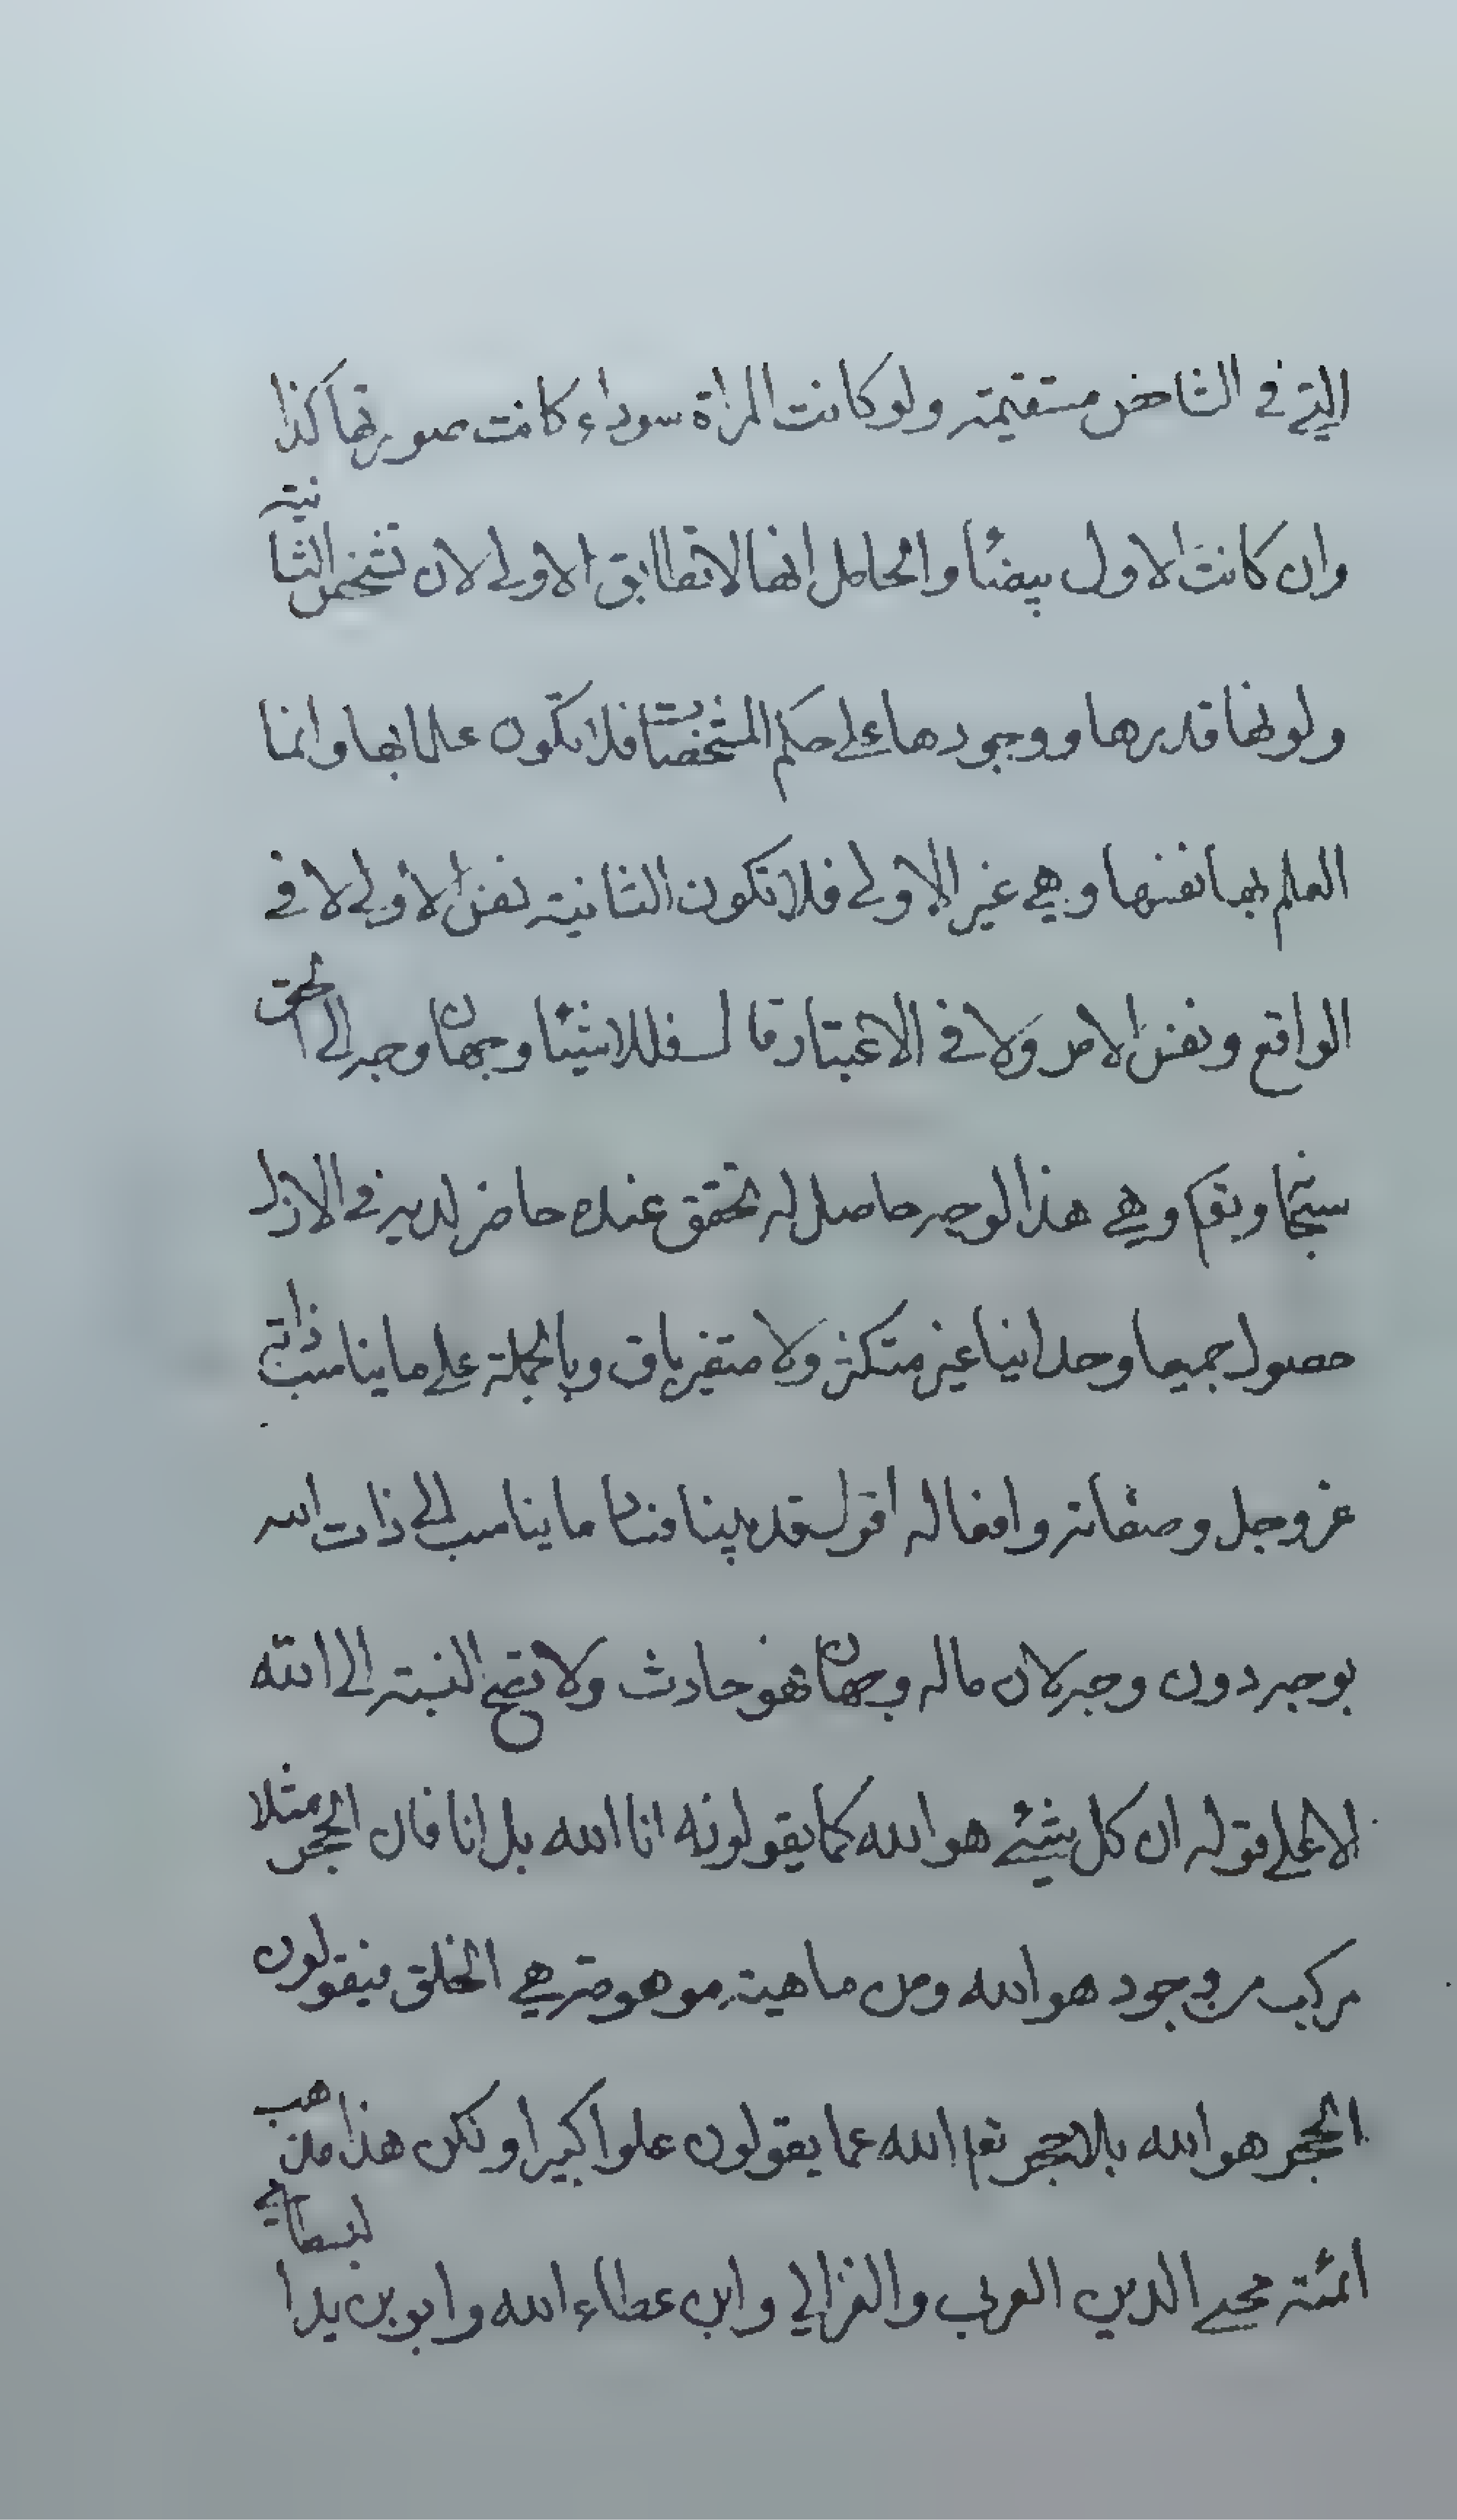 التي في الشاخص مستقيمة ولو كانت المراة سوداء كانت صورتها كذا
وان كانت الاولى بيضا والحاصل انها لا تطابق الاولى لان تشخص الثانية
ولونها قدرها ووجودها على حكم المشخصات فلا تكون علما بها وانما
العلم بها نفسها وهي غير الاولى فلا تكون الثانية نفس الاولى لا في
الواقع ونفس الامر ولا في الاعتبار قال فللاشيئا وجهان وجه الى الحق
سبحا وتعا وهي هذا الوجه حاصل له تحقق عنده حاضر لديه في الازل
حصولا جميعا وحدانيا غير متكثر ولا متغير باق وبالجملة على ما يناسب ذاته
عز وجل وصفاته وافعاله اقول قد بينا فساد ما يناسب الى ذات الله
بوجه دون وجه لان ماله وجهان فهو حادث ولا تصح النسبة الى الله
الا على قوله ان كل شيئ هو الله كما يقولونه انا الله بلا انا فان الحجر مثلا
مركب من وجود هو الله ومن ماهية موهومة هي الخلق فيقولون
الحجر هو الله بلا حجر تعا الله عما يقولون علوا كبيرا ولكن هذا مذهب
ائمته محيي الدين العربي والغزالي وابن عطاء الله وابو يزيد البسطامي